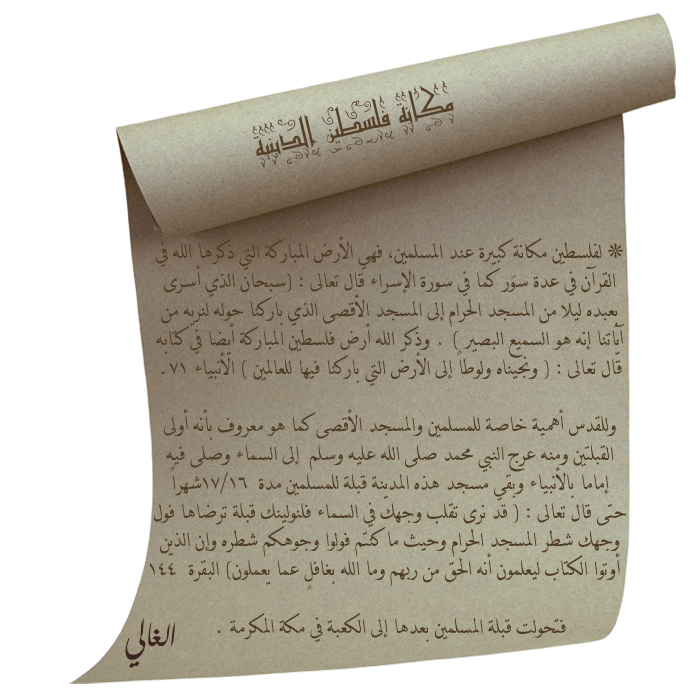 مكانة فلسطين الدينية
❋ لفلسطين مكانة كبيرة عند المسلمين، فهي الأرض المباركة التي ذكرها الله في
القرآن في عدة سوَر كما في سورة الإسراء قال تعالى : (سبحان الذي أسرى
بعبده ليلا من المسجد الحرام إلى المسجد الأقصى الذي باركنا حوله لنريه من
آياتنا إنه هو السميع البصير ) . وذكر الله أرض فلسطين المباركة أيضا في كتابه
قال تعالى : ( ونجيناه ولوطاً إلى الأرض التي باركنا فيها للعالمين ) الأنبياء ٧١ .
وللقدس أهمية خاصة للمسلمين والمسجد الأقصى كما هو معروف بأنه أولى
القبلتين ومنه عرج النبي محمد صلى الله عليه وسلم إلى السماء وصلى فيه
إماما بالأنبياء وبقي مسجد هذه المدينة قبلة للمسلمين مدة ١٧/١٦شهراً
حتى قال تعالى : ( قد نرى تقلب وجهك في السماء فلنولينك قبلة ترضاها فول
وجهك شطر المسجد الحرام وحيث ما كنتم فولوا وجوهكم شطره وإن الذين
أوتوا الكتاب ليعلمون أنه الحق من ربهم وما الله بغافلٍ عما يعملون) البقرة ١٤٤
فتحولت قبلة المسلمين بعدها إلى الكعبة في مكة المكرمة .
الغالي